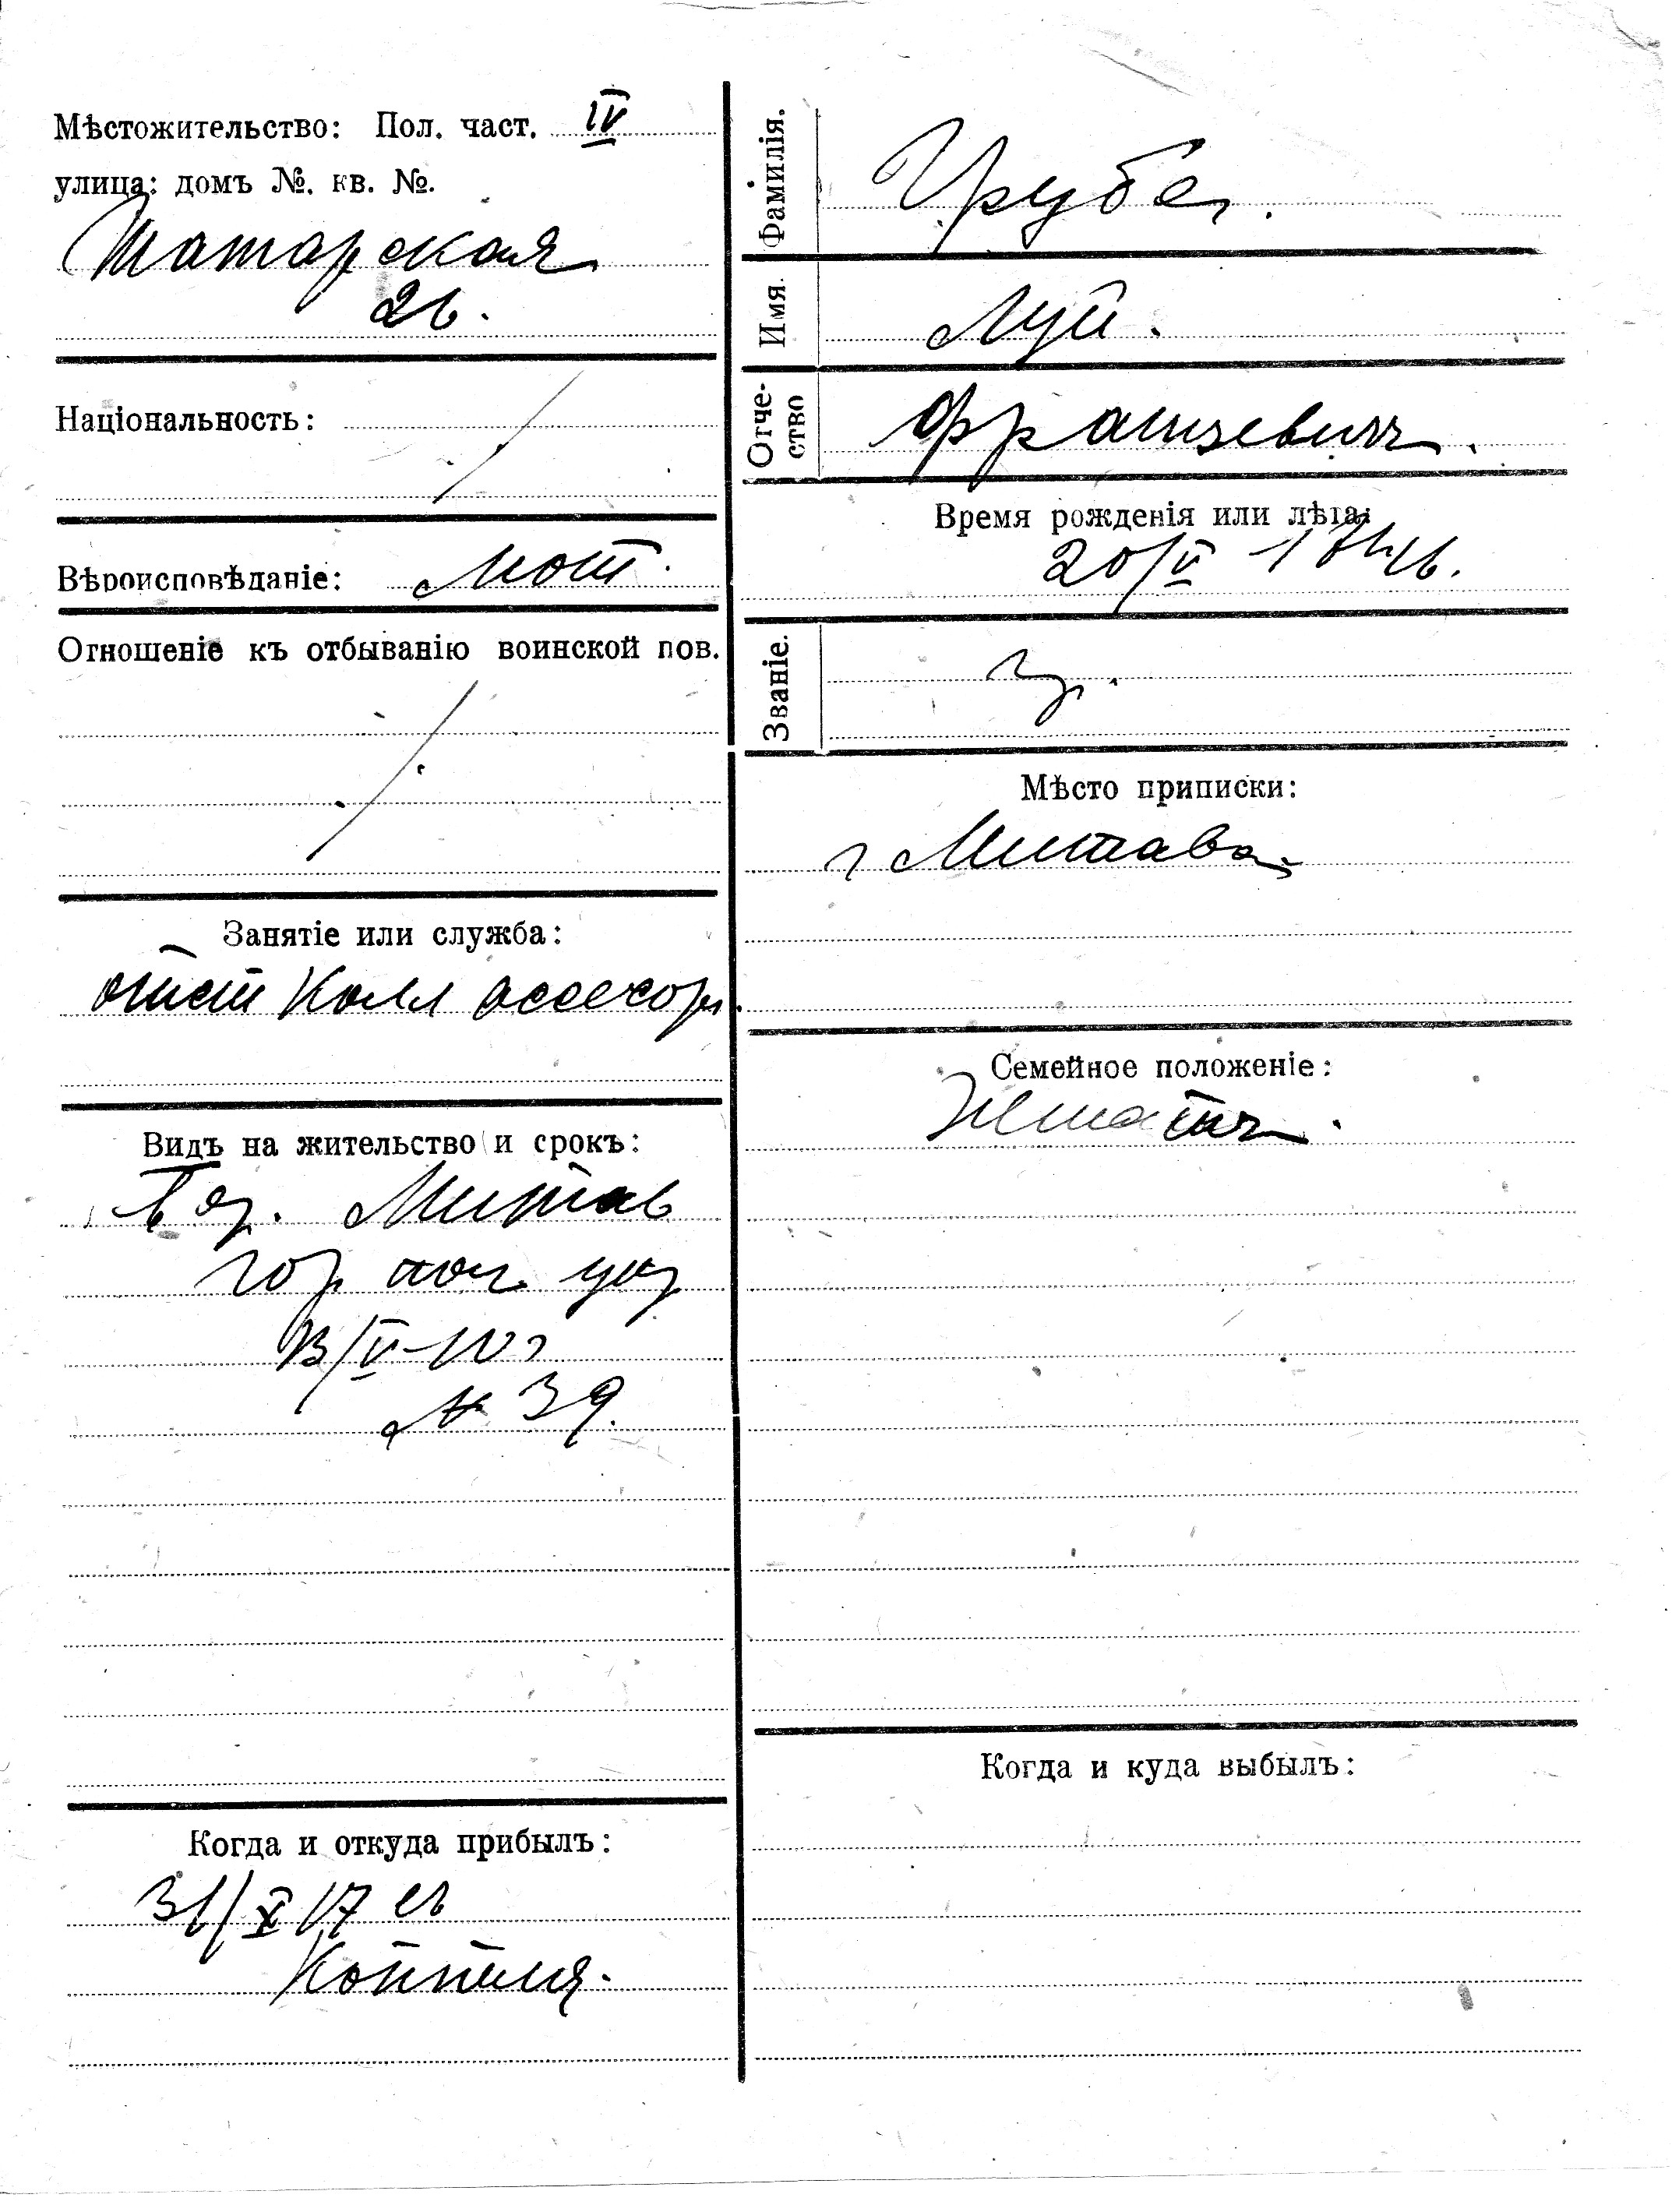 Мѣстожительство: Пол. част. IV
улица: домъ №. кв. №.
Татарская
26.
Національность:
Вѣроисповѣданіе: лют.
Отношеніе къ отбыванію воинской пов.
Занятіе или служба:
отст Колл ассесоръ.
Видъ на жительство и срокъ:
Митав
гор пол упр
13/V-10г
№ 39.
Когда и откуда прибылъ:
31/X 17 съ
Фамилія. Грубе.
Имя. Луи.
Отчество Францевичъ.
Время рожденія или лѣта:
20/V
Званіе.
Мѣсто приписки:
г Митава
Семейное положеніе:
Женатъ.
Когда и куда выбылъ: